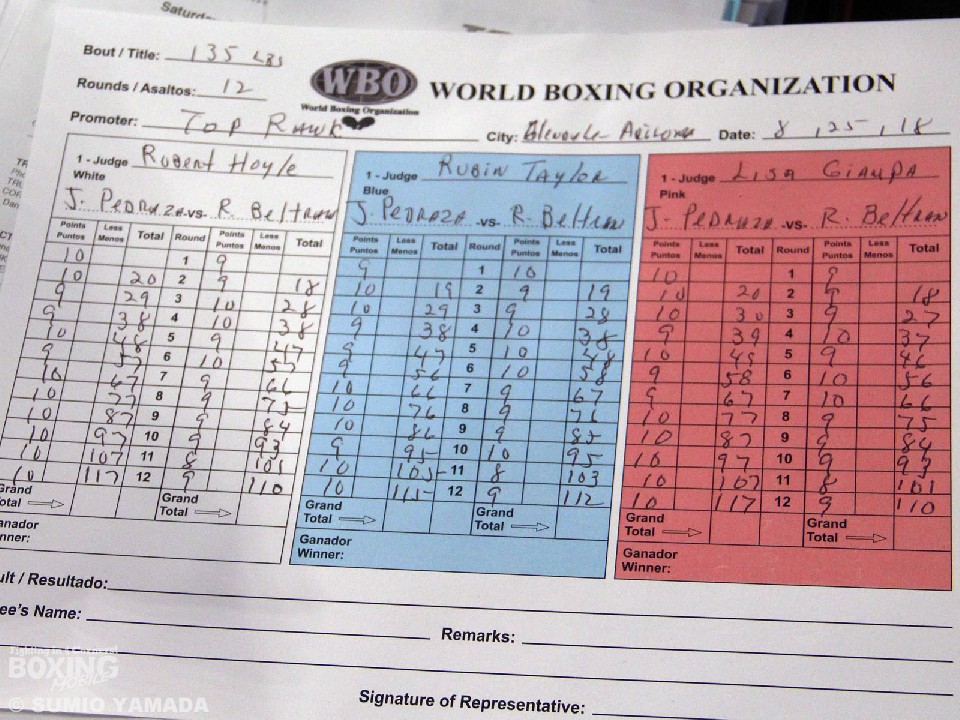 Saturd
Bout / Title: 135 LBS
Rounds / Asaltos: 12
WBO
World Boxing Organization
WORLD BOXING ORGANIZATION
Promoter: TOP RANK City: Glendale Arizona Date: 8, 25, 18
1 - Judge Robert Hoyle
White
J. PEDRAZA -vs- R. BeltRAN
Points Puntos Less Menos Total Round Points Puntos Less Menos Total
10 1 9
10 20 2 9 18
9 29 3 10 28
9 38 4 10 38
10 48 5 9 47
9 57 6 10 57
10 67 7 9 66
10 77 8 9 75
10 87 9 9 84
10 97 10 9 93
10 107 11 8 101
10 117 12 9 110
Grand Total Grand Total
anador
nner:
1 - Judge RUBIN TayloR
Blue
J. PEDRAZA -vs- R. BeltRAN
Points Puntos Less Menos Total Round Points Puntos Less Menos Total
9 1 10
10 19 2 9 19
10 29 3 9 28
9 38 4 10 38
9 47 5 10 48
9 56 6 10 58
10 66 7 9 67
10 76 8 9 76
10 86 9 9 85
9 95 10 10 95
10 105 11 8 103
10 115 12 9 112
Grand Total Grand Total
Ganador
Winner:
1 - Judge LISA GIAMPA
Pink
J. PEDRAZA -vs- R. BeltRAN
Points Puntos Less Menos Total Round Points Puntos Less Menos Total
10 1 9
10 20 2 9 18
10 30 3 9 27
9 39 4 10 37
10 49 5 9 46
9 58 6 10 56
9 67 7 10 66
10 77 8 9 75
10 87 9 9 84
10 97 10 9 93
10 107 11 8 101
10 117 12 9 110
Grand Total Grand Total
Ganador
Winner:
ult / Resultado:
ee's Name:
Remarks:
Signature of Representative:
Fighting in a Cornered
BOXING
MOBILE
© SUMIO YAMADA